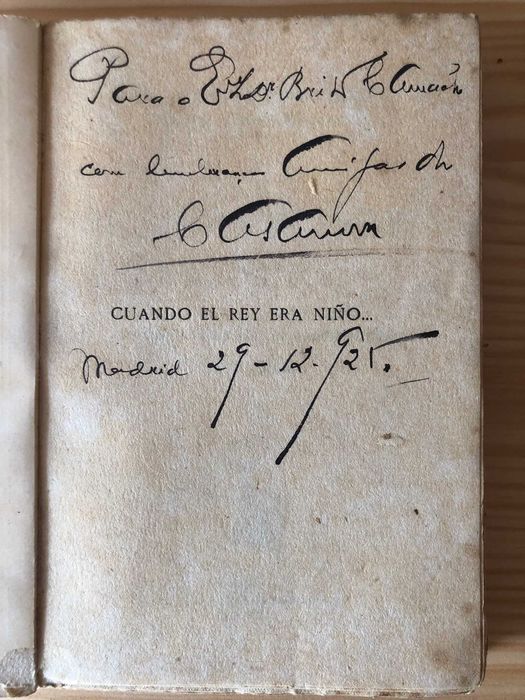 Para o Exmo Dr. Brito Camacho
com lembranças Amigas de
Casanova
CUANDO EL REY ERA NIÑO...
Madrid 29-12-925.